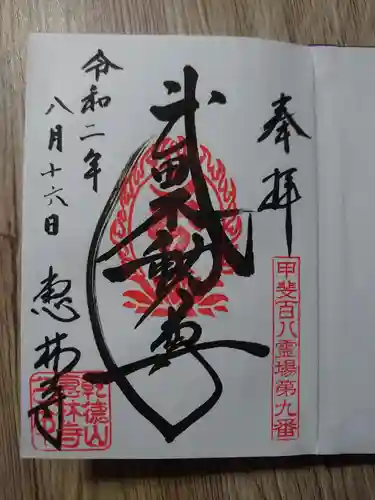 奉拝
甲斐百八霊場第九番
武田不動尊
令和二年
八月十六日
恵林寺
乾徳山
恵林寺